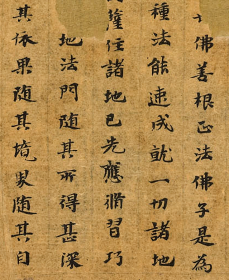 佛善根正法佛子是為
種法能速成就一切諸地
薩住諸地已先應脩習巧
地法門随其所得甚深
其依果随其境界随其自